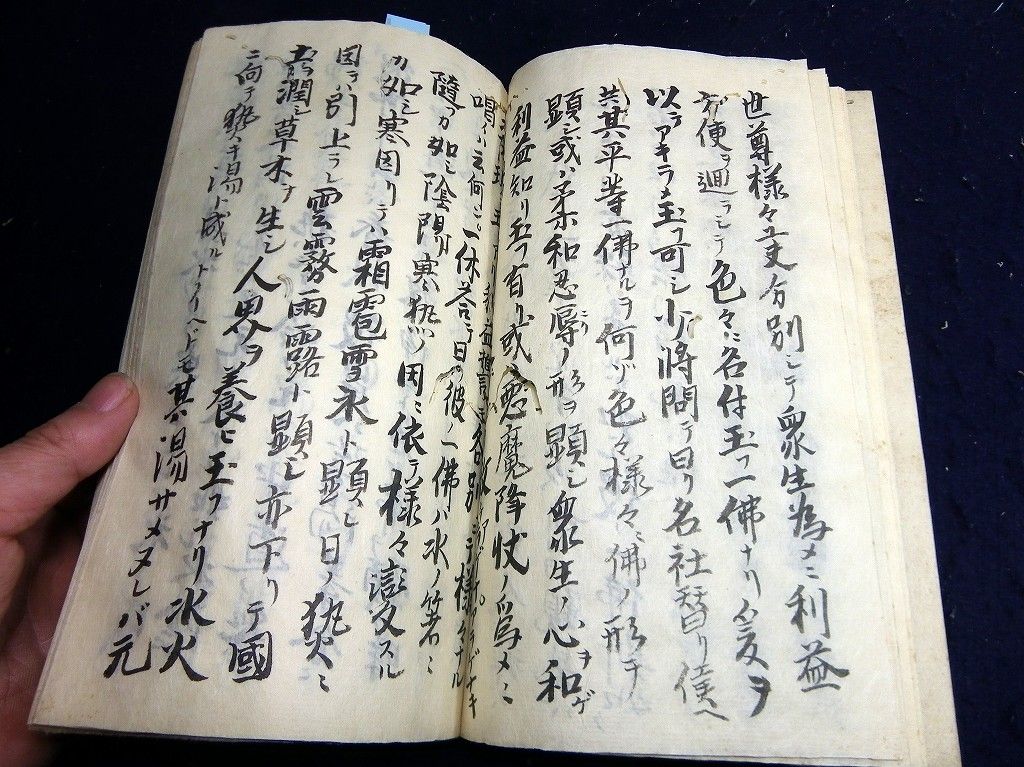 世尊様々ニ支分別シテ衆生為メニ利益
方便ヲ廻ラシテ色々ニ名付玉フ一佛ナリ爰ヲ
以テアキラメ玉フ可シ少将問テ曰リ名社替リ候ヘ
共其平等一佛ナルヲ何ゾ色々様々ニ佛ノ形チ
顕シ或ハ柔和忍辱ノ形ヲ顕シ衆生ノ心ヲ和ゲ
利益知リ玉フ有リ或ハ悪魔降伏ノ為メニ
唱イハ云何ニ一休答テ曰ク彼ノ一佛ハ水ノ
隨フガ如シ陰陽寒熱ノ因ニ依テ様々変スル
ガ如シ寒因リテハ霜雹雪氷ト顕シ日ノ熱ニ
因テハ引上ラレ雲霧雨露ト顕シ亦下リテ國
土ヲ潤シ草木ヲ生シ人界ヲ養ヒ玉フナリ水火
ニ向テ熱キ湯ト成ルトイヘドモ其湯サメヌレバ元